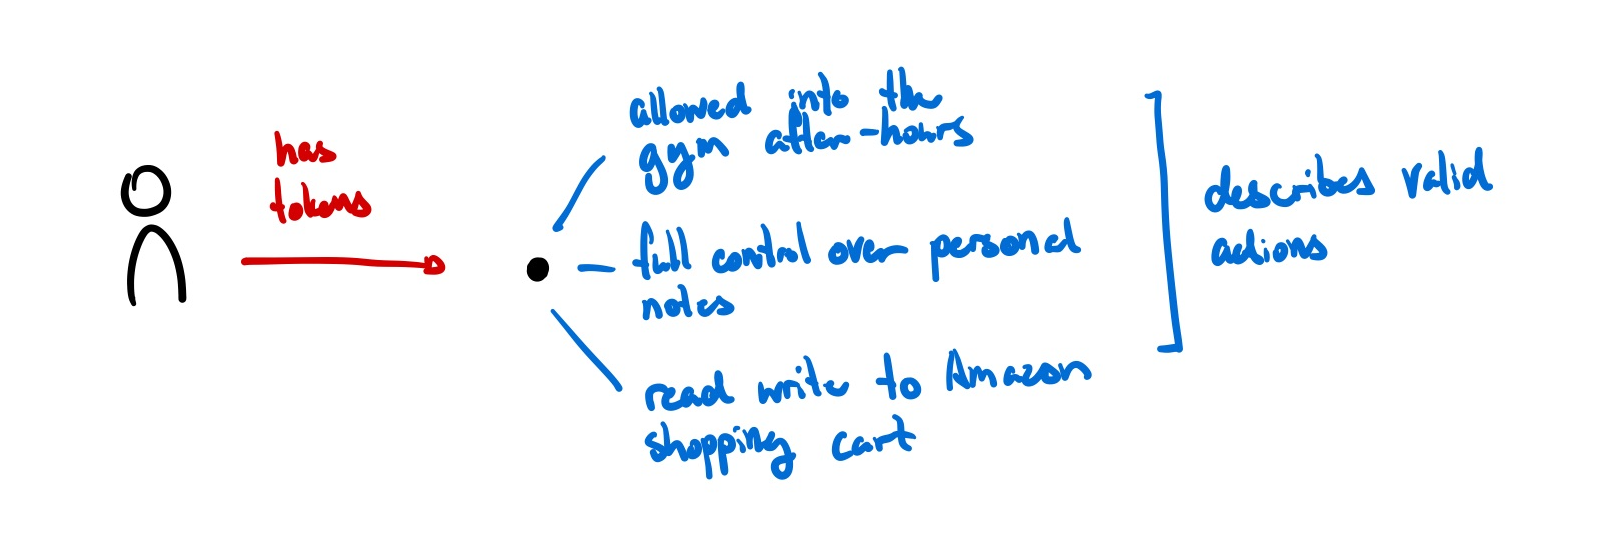 has
tokens
allowed into the
gym after-hours
full control over personal
notes
read write to Amazon
shopping cart
describes valid
actions